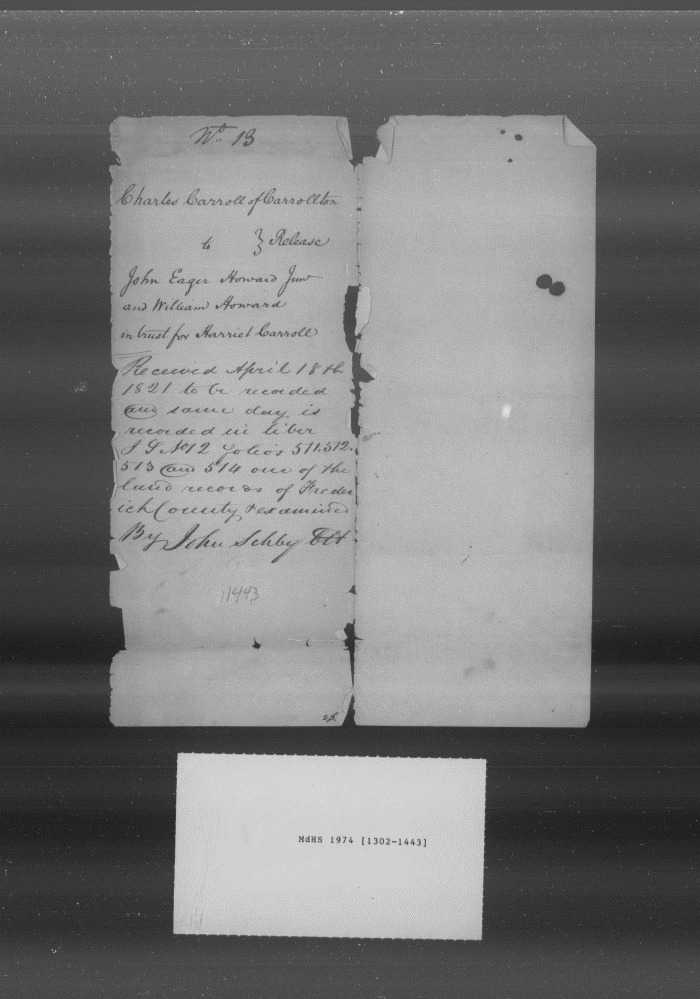 No. 13
Charles Carroll of Carrollton
to } Release
John Eager Howard Junr
and William Howard
in trust for Harriet Carroll
Received April 18th
1821 to be recorded
and same day is
recorded in liber
J S No 12 folios 511.512.
513 and 514 one of the
land records of Freder
ick County & examined
By John Schley Clk
1443
MdHS 1974 [1302-1443]